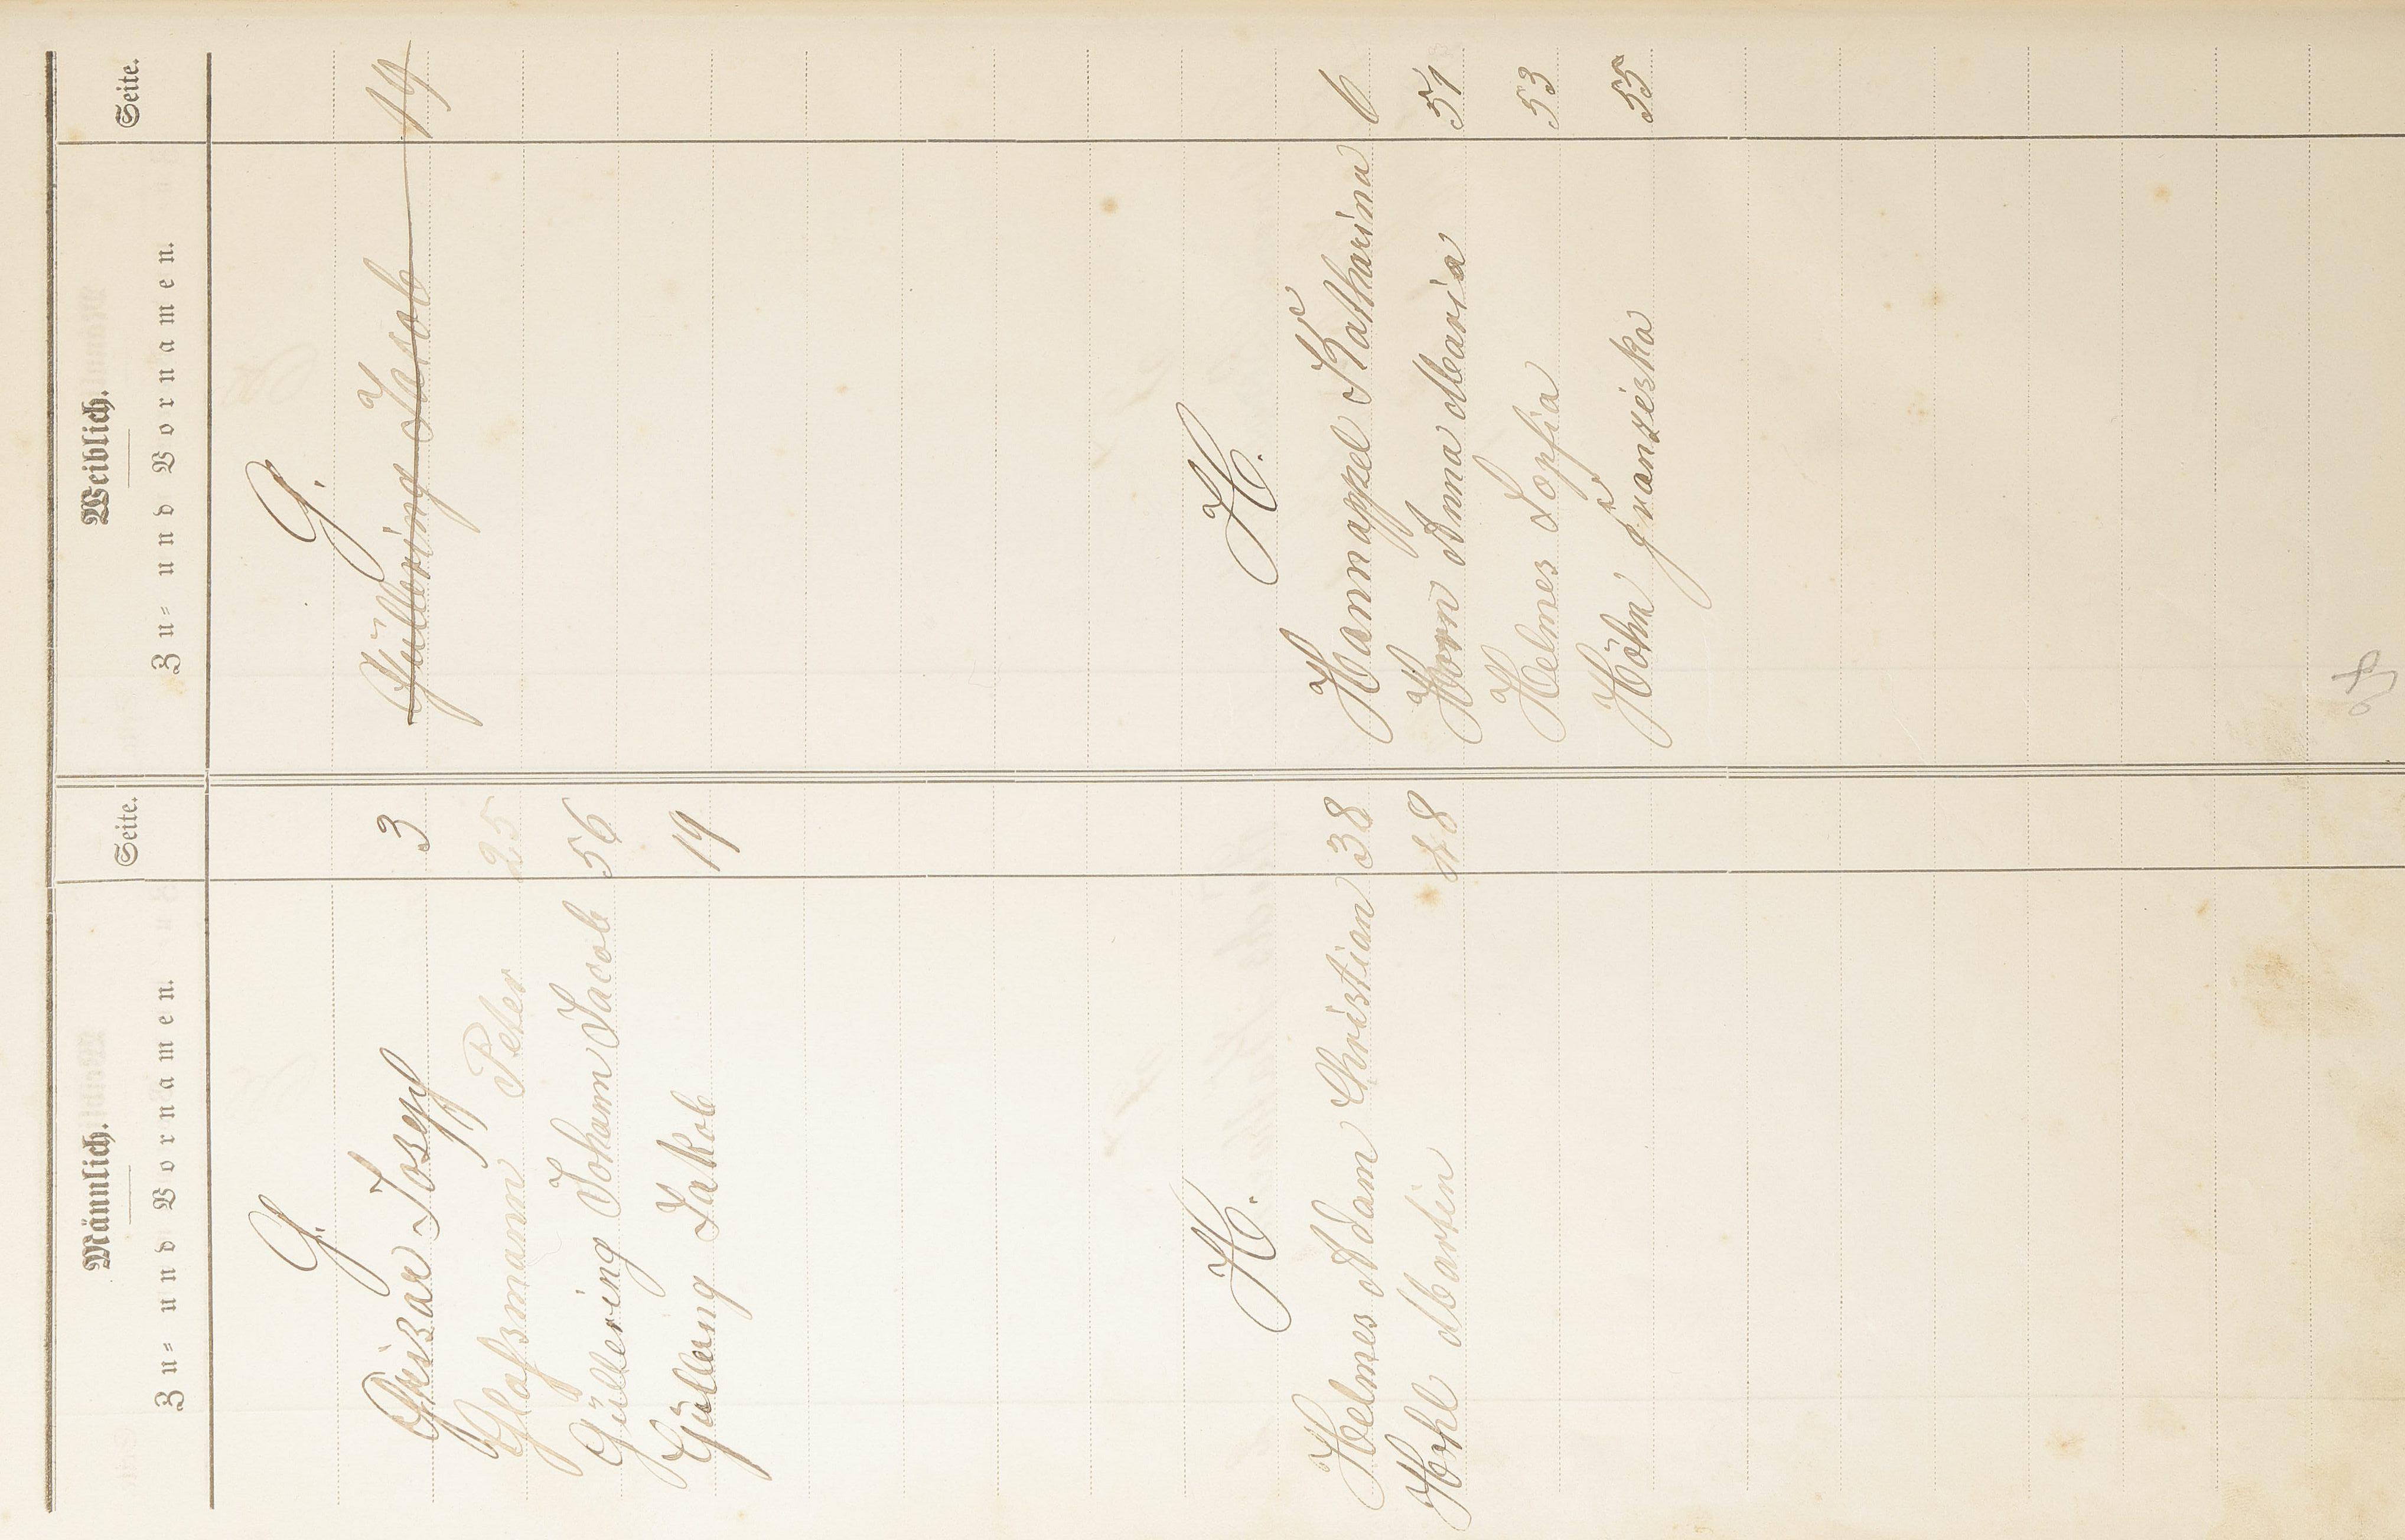 Männlich.
Zu- und Vornamen. Seite.
G.
Grisar Joseph 3
Glaßmann Peter 25
Güllering Johann Jacob 56
Gülleing Jakob 19
H.
Helmes Adam Christian 38
Hohl Martin 48
Weiblich.
Zu- und Vornamen. Seite.
G.
Güllering Jacob 19
H.
Hannappel Katharina 6
Horn Anna Maria 51
Helmes Sophia 53
Höhn Franziska 55